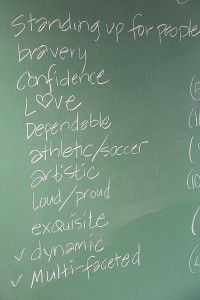 Standing up for people
bravery
Confidence
L♡ve
Dependable
athletic/soccer
artistic
Loud/proud
exquisite
✓ dynamic
✓ Multi-faceted